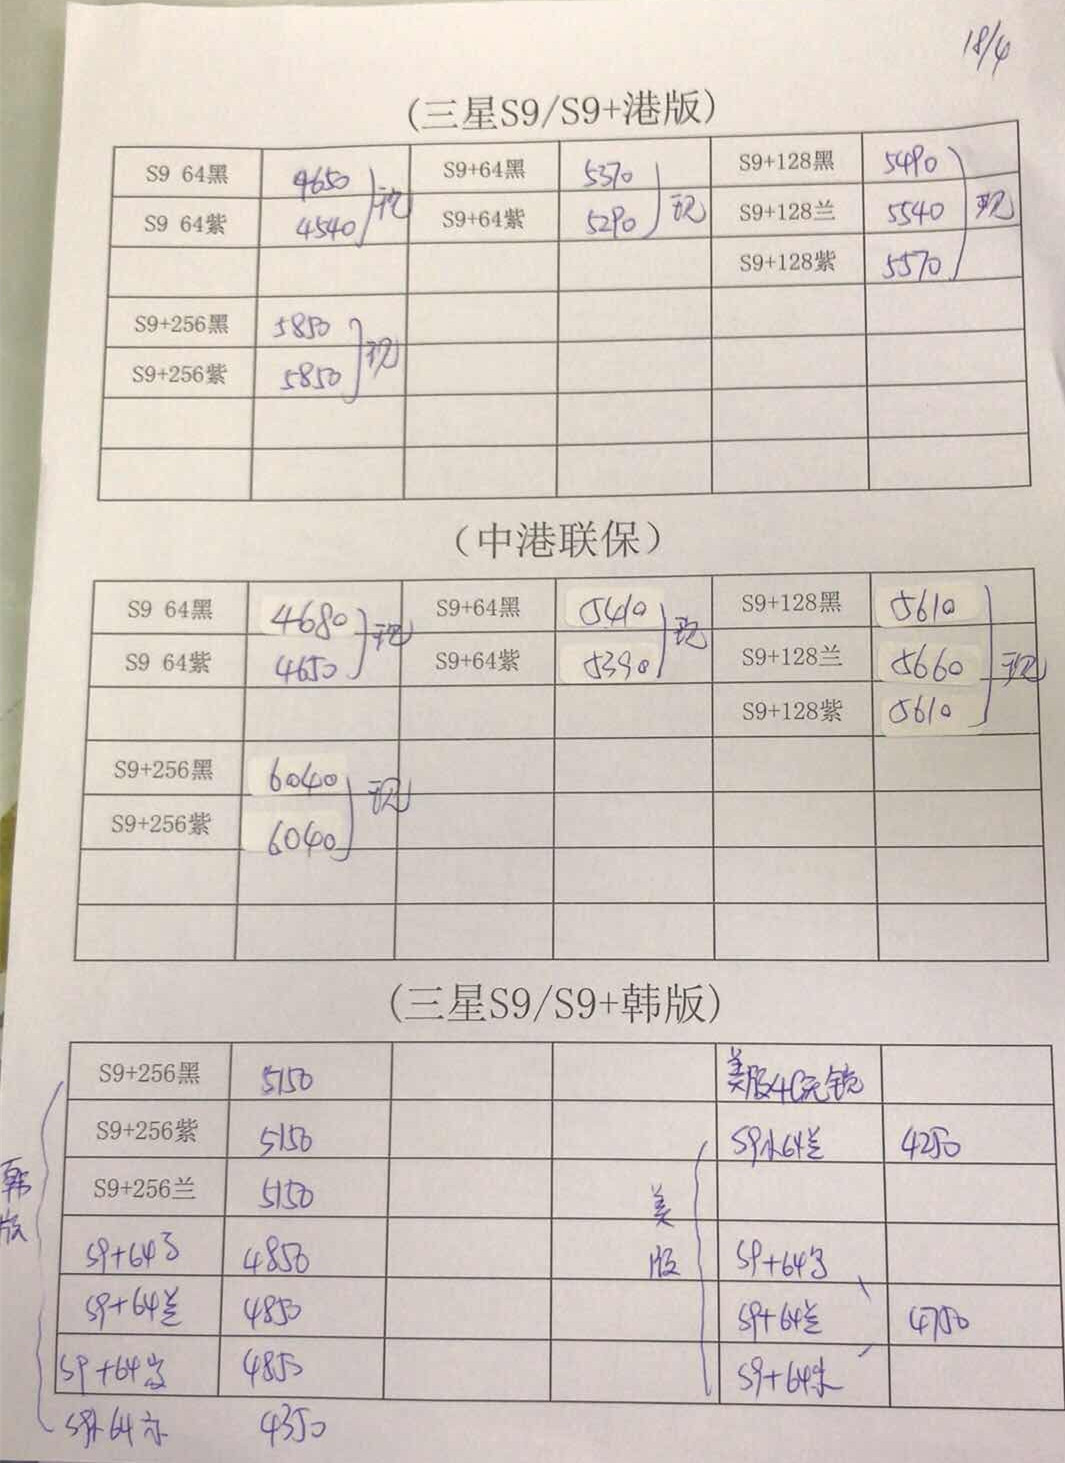 18/4
(三星S9/S9+港版)
S9 64黑 4650 现 S9+64黑 5370 现 S9+128黑 5490 现
S9 64紫 4540 S9+64紫 5290 S9+128兰 5540
S9+128紫 5570
S9+256黑 5850 现
S9+256紫 5850
（中港联保）
S9 64黑 4680 现 S9+64黑 5410 现 S9+128黑 5610 现
S9 64紫 4650 S9+64紫 5390 S9+128兰 5660
S9+128紫 5610
S9+256黑 6040 现
S9+256紫 6040
(三星S9/S9+韩版)
韩版
S9+256黑 5150 美版
S9+256紫 5150 S9小64兰 4250
S9+256兰 5150 美版
S9+64 4850 S9+64
S9+64兰 4850 S9+64兰 4750
S9+64 4850 S9+64
S9小64 4350